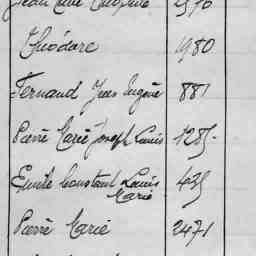 Jean 2570
Théodore 1980
Fernand Jean Eugène 881
Pierre Marie Joseph Louis 1285
Emile Constant Louis 435
Marie
Pierre Marie 2471